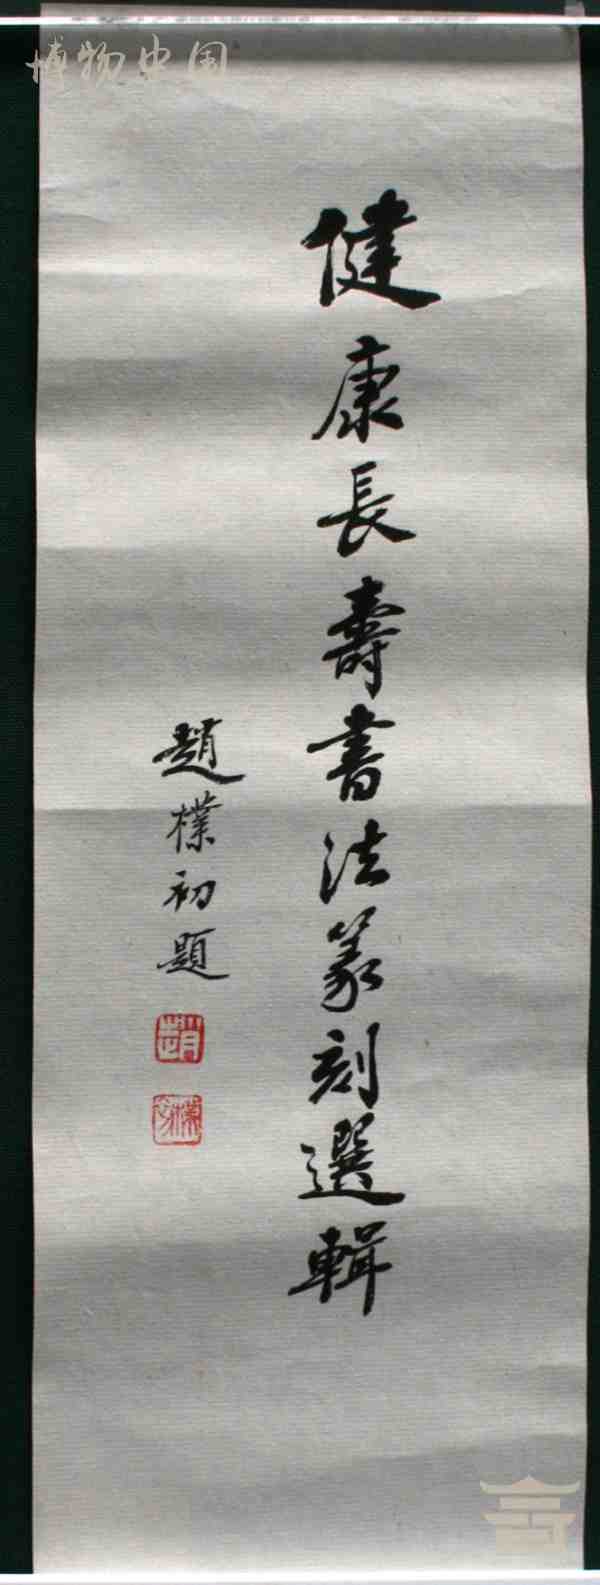 博物中国
健康長壽書法篆刻選輯
趙樸初題
趙
樸初